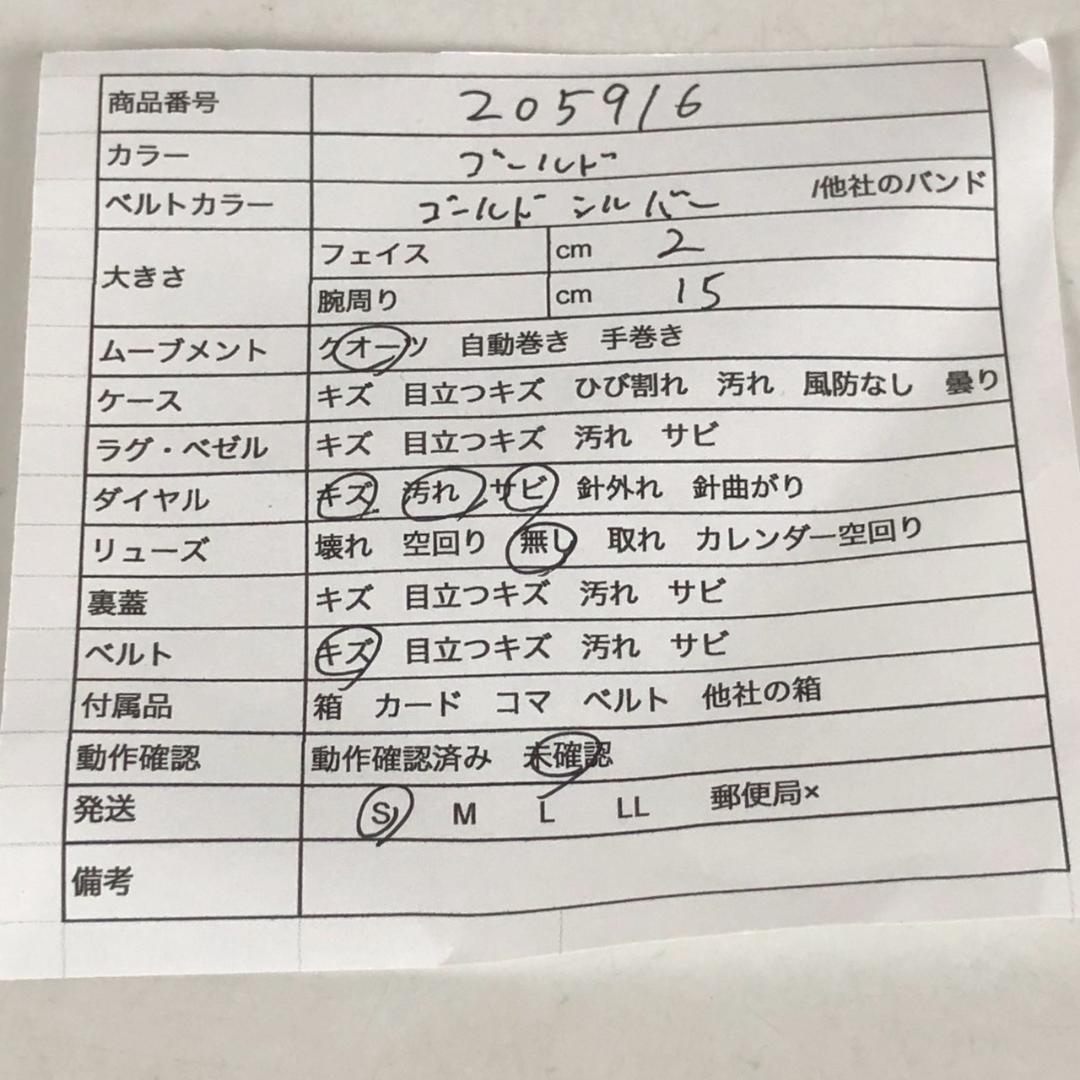 商品番号 205916
カラー ゴールド
ベルトカラー ゴールド シルバー /他社のバンド
大きさ フェイス cm 2
腕周り cm 15
ムーブメント クオーツ 自動巻き 手巻き
ケース キズ 目立つキズ ひび割れ 汚れ 風防なし 曇り
ラグ・ベゼル キズ 目立つキズ 汚れ サビ
ダイヤル キズ 汚れ サビ 針外れ 針曲がり
リューズ 壊れ 空回り 無し 取れ カレンダー空回り
裏蓋 キズ 目立つキズ 汚れ サビ
ベルト キズ 目立つキズ 汚れ サビ
付属品 箱 カード コマ ベルト 他社の箱
動作確認 動作確認済み 未確認
発送 S M L LL 郵便局×
備考